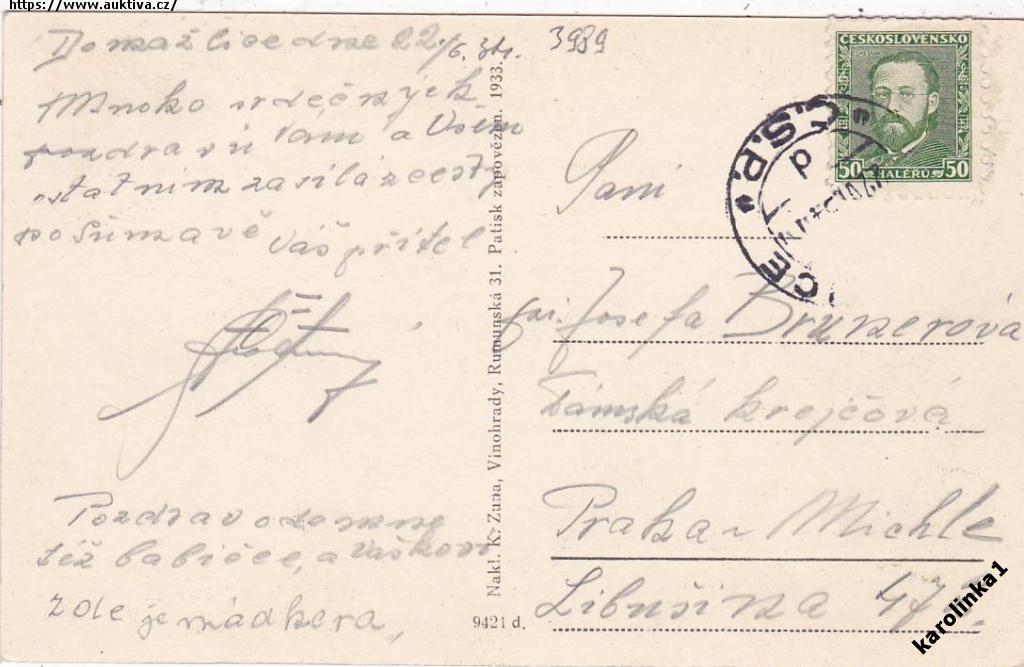 https://www.auktiva.cz/
Domažlice dne 22./6. 34.
Mnoko srdečných
pozdravů Vám a Všem
ostatním zasílá z cesty
po Šumavě Váš přítel
Pozdrav odemne
též babičce, a Vaškovi
zde je nádhera,
Nakl. K. Zuna, Vinohrady, Rumunská 31. Patisk zapovězen. 1933.
9421 d.
3989
ČESKOSLOVENSKO
50 HALÉŘŮ 50
Č.S.P.
Paní
Josefa Brunerová
Dámská krejčová
Praha - Michle
Libušina 47
karolinka1